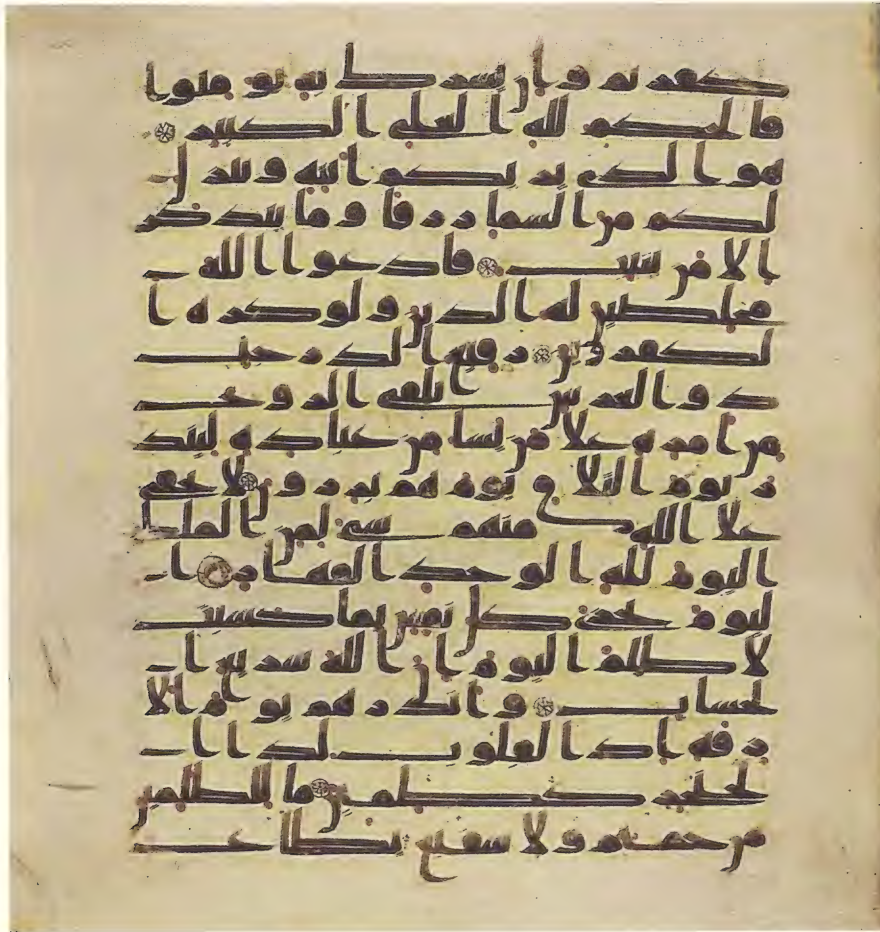 كفرتم وان يشرك به تومنوا
فالحكم لله العلي الكبير
هو الذي يريكم ايته وينزل
لكم من السما رزقا وما يتذكر
الا من ينيب فادعوا الله
مخلصين له الدين ولو كره ا
لكفرون رفيع الدرجت
ذو العرش يلقي الروح
من امره على من يشا من عباده لينذ
ر يوم التلاق يوم هم برزون لا يخفى
على الله منهم شي لمن الملك
اليوم لله الوحد القهار ا
ليوم تجزى كل نفس بما كسبت
لا ظلم اليوم ان الله سريع ا
لحساب وانذرهم يوم الا
زفه اذ القلوب لدا ا
لحناجر كظمين ما للظلمين
من حميم ولا شفيع يطاع